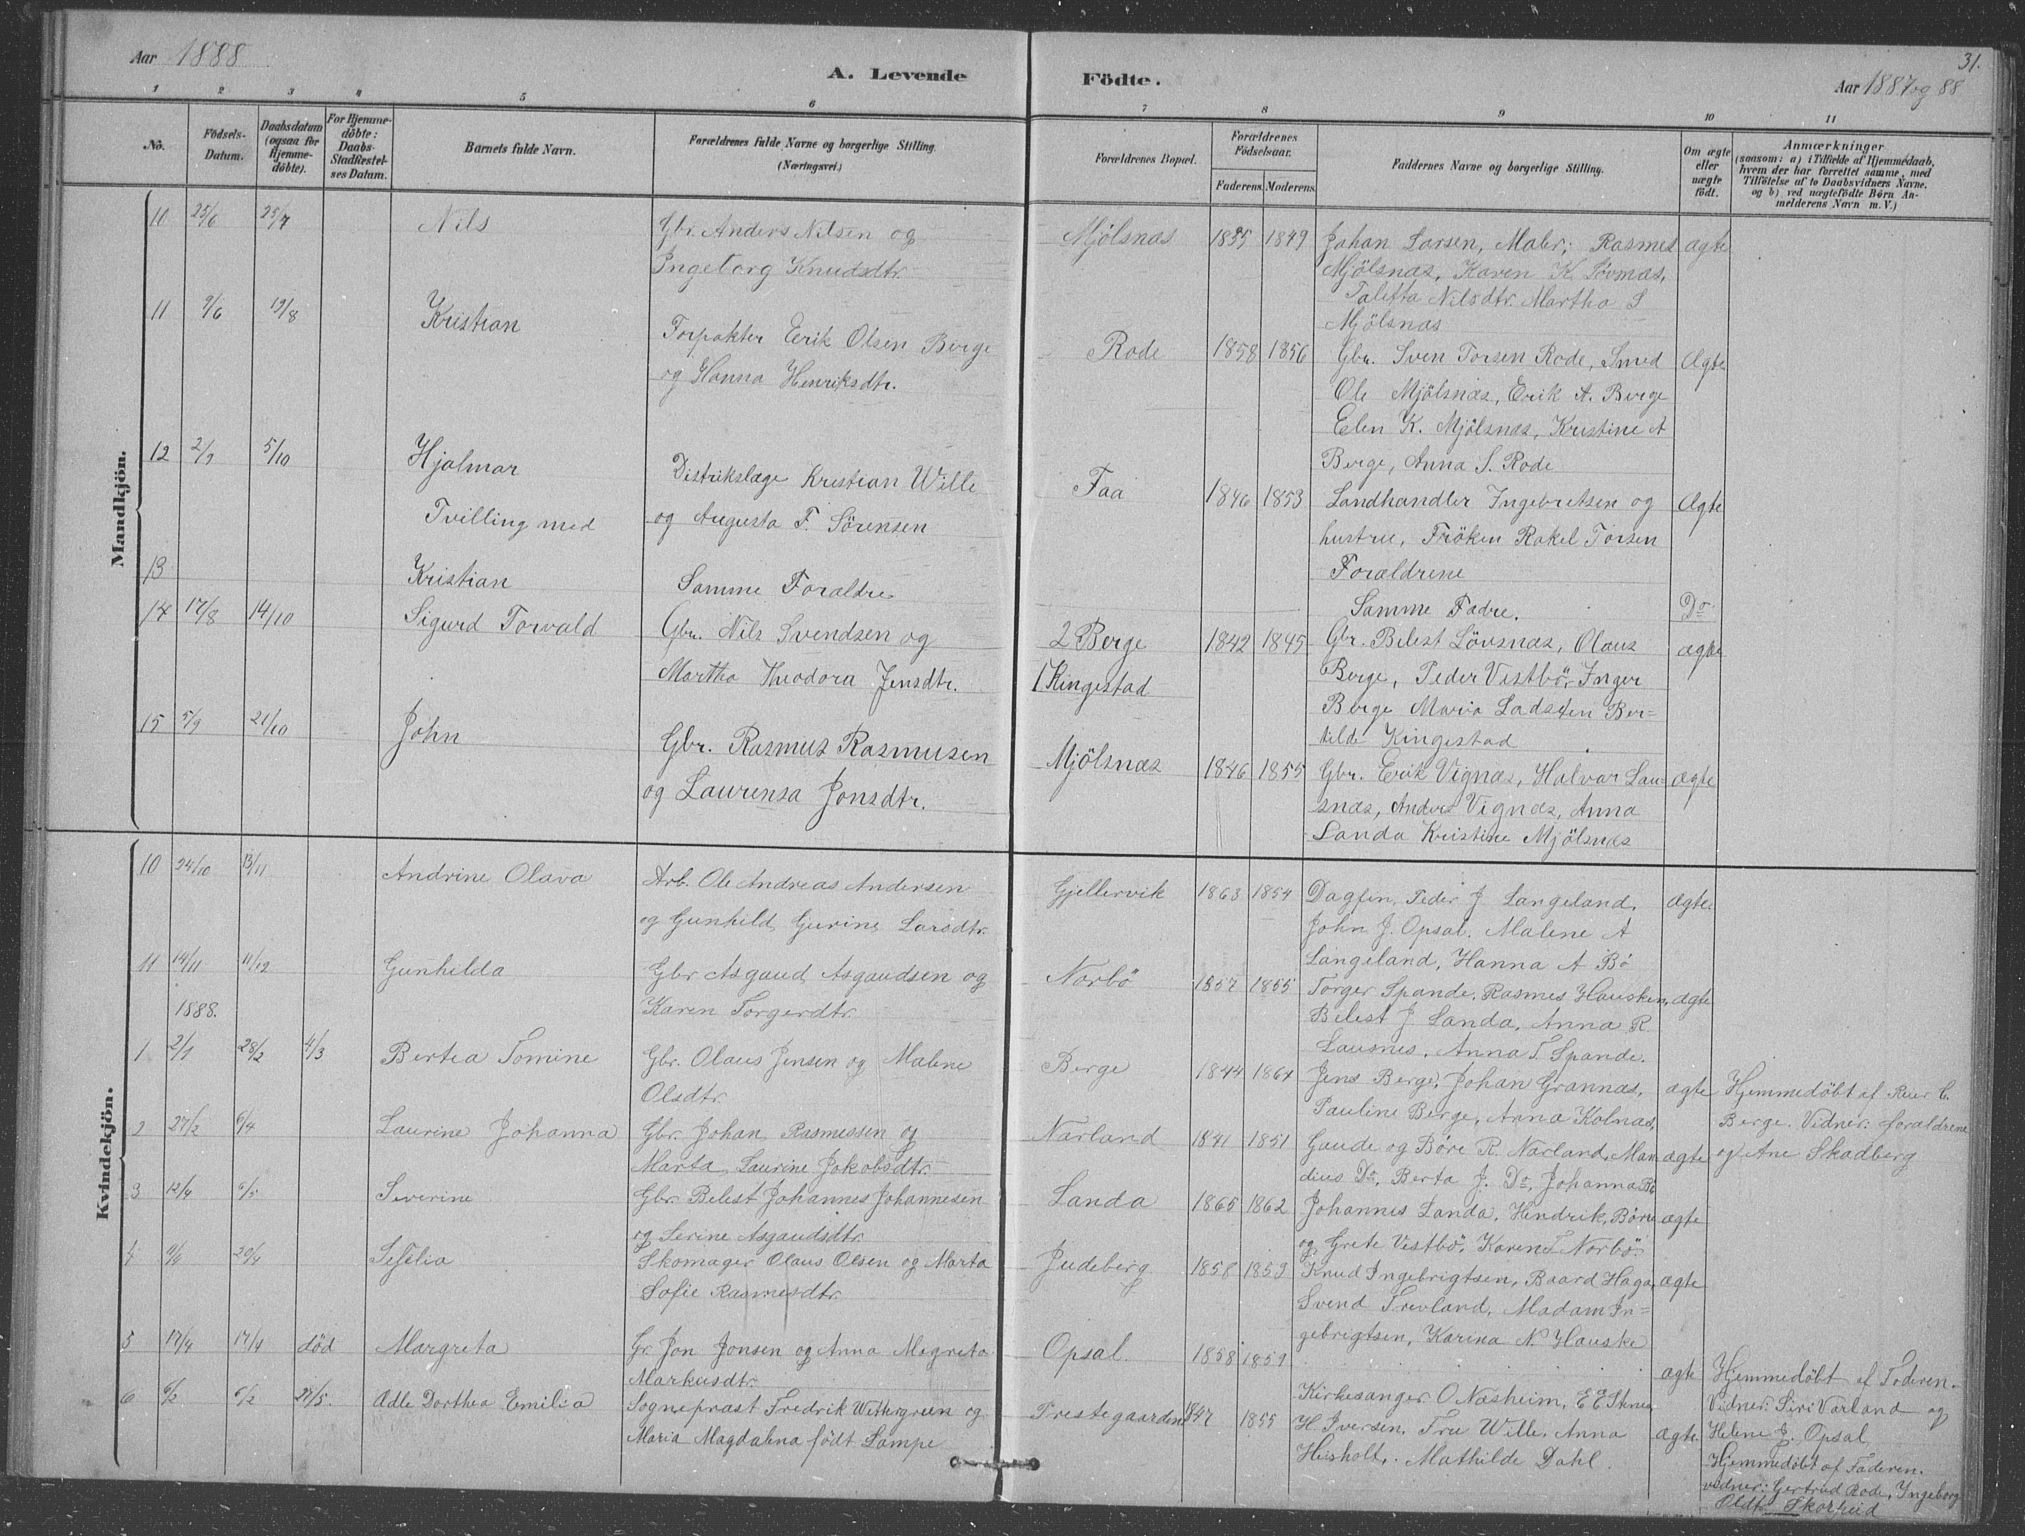 Aar 1888
A. Levende
Födte.
Aar 1887 og 88
31.
1 2 3 4 5 6 7 8 9 10 11
No.
Födsels-
Datum.
Daabsdatum
(ogsaa for
Hjemme-
döbte).
For Hjemme-
döbte:
Daabs-
Stadfæstel-
ses Datum.
Barnets fulde Navn.
Forældrenes fulde Navne og borgerlige Stilling
(Næringsvei.)
Forældrenes Bopæl.
Forældrenes
Födselsaar.
Faderens. Moderens.
Faddernes Navne og borgerlige Stilling.
Om ægte
eller
uægte
födt.
Anmærkninger
(saasom: a) i Tilfælde af Hjemmedaab,
hvem der har forrettet samme, med
Tilföielse af to Daabsvidners Navne.
og b) ved uægtefödte Börn An-
melderens Navn m. V.)
Mandkjön.
10 25/6 25/7 Nils Gbr. Anders Nilsen og Mjölsnæs 1855 1849 Johan Larsen, Maler; Rasmus ægte
Ingeborg Knudsdtr. Mjölsnæs, Karen K. Søvnæs,
Taletta Nilsdtr. Martha S
Mjölsnæs
11 9/6 19/8 Kristian Forpakter Erik Olsen Berge Rode 1858 1856 Gbr. Sven Torsen Rode, Smed Ægte
og Hanna Henriksdtr. Ole Mjölsnæs, Erik A. Berge
Elen K. Mjölsnæs, Kristine A
Berge, Anna S. Rode
12 2/9 5/10 Hjalmar Distrikslæge Kristian Wille Faa 1846 1853 Landhandler Ingebretsen og Ægte
Tvilling med og Augusta F. Sørensen hustru, Fröken Rakel Torsen
Forældrene
13 Kristian Samme Forældre Samme Fadre. Do
14 17/8 14/10 Sigurd Torvald Gbr. Nils Svendsen og 2 Berge 1842 1845 Gbr. Belest Lövsnæs, Olaus ægte
Martha Theodora Jensdtr. 1 Kingestad Berge, Peder Vestbö, Inger
Berge Maria Ladsten Ber-
tilde Kingestad
15 5/9 21/10 John Gbr. Rasmus Rasmusen Mjölsnæs 1846 1855 Gbr. Erik Vignæs, Halvar Lau- ægte
og Laurensa Jonsdtr. snæs, Anders Vignæs, Anna
Landa Kristine Mjölsnæs
Kvindekjön.
10 24/10 13/11 Andrine Olava Arb. Ole Andreas Andersen Gjellervik 1863 1854 Dagfin, Peder J Langeland, ægte.
og Gunhild Gurine Larsdtr. John J. Opsal. Malene A
Langeland, Hanna A Bö
11 14/11 11/12 Gunhilda Gbr Asgaud Asgaudsen og Norbö 1857 1855 Torger Spande, Rasmes Hausken, ægte
Karen Torgerdtr. Belest J Landa, Anna R
Lausnes, Anna T. Spande.
1888.
1 2/1 28/2 4/3 Bertea Tomine Gbr. Olaus Jensen og Malene Berge 1844 1864 Jens Berge, Johan Grannæs, ægte Hjemmedöbt af Reier C.
Olsdtr. Pauline Berge, Anna Kolnæs, Berge. Vidner: Foraldrene
og Ane Skadberg
2 27/2 6/4 Laurine Johanna Gbr. Johan Rasmussen og Nærland 1841 1851 Gaude og Børe R. Nærland, Man ægte
Marta Laurine Jakobsdtr. dius Do, Berta J. Do, Johanna Bö
3 12/4 6/5 Severine Gbr. Belest Johannes Johannesen Landa 1865 1862 Johannes Landa, Hendrik, Børe ægte
og Serine Asgaudsdtr. og Grete Vestbö, Karen T Norbö
4 9/4 20/4 Sesélia Skomager Olaus Olsen og Marta Judeberg 1858 1859 Knud Ingebrigtsen, Baard Haga, ægte
Sofie Rasmesdtr. Svend Trevland, Madam In-
gebrigtsen, Karina N. Hauske
5 17/4 17/4 död Margreta Gr. Jon Jonsen og Anna Megreta Opsal. 1858 1859 ægte Hjemmedöbt af Foderen.
Markusdtr. Vidner: Siri Varland og
Helene J. Opsal
6 6/2 6/2 27/5. Adle Dorthea Emilia Sogneprast Fredrik Wettergreen og Prestegaarden 1847 1855 Kirkesanger O Næsheim, E E Stensø ægte. Hjemmedöbt af Faderen.
Maria Magdalena födt Lampe H. Iversen, Fru Wille, Anna vidner: Gertrud Rode, Ingeborg
Heisholt, Mathilde Dahl. Oldt. Skorteid